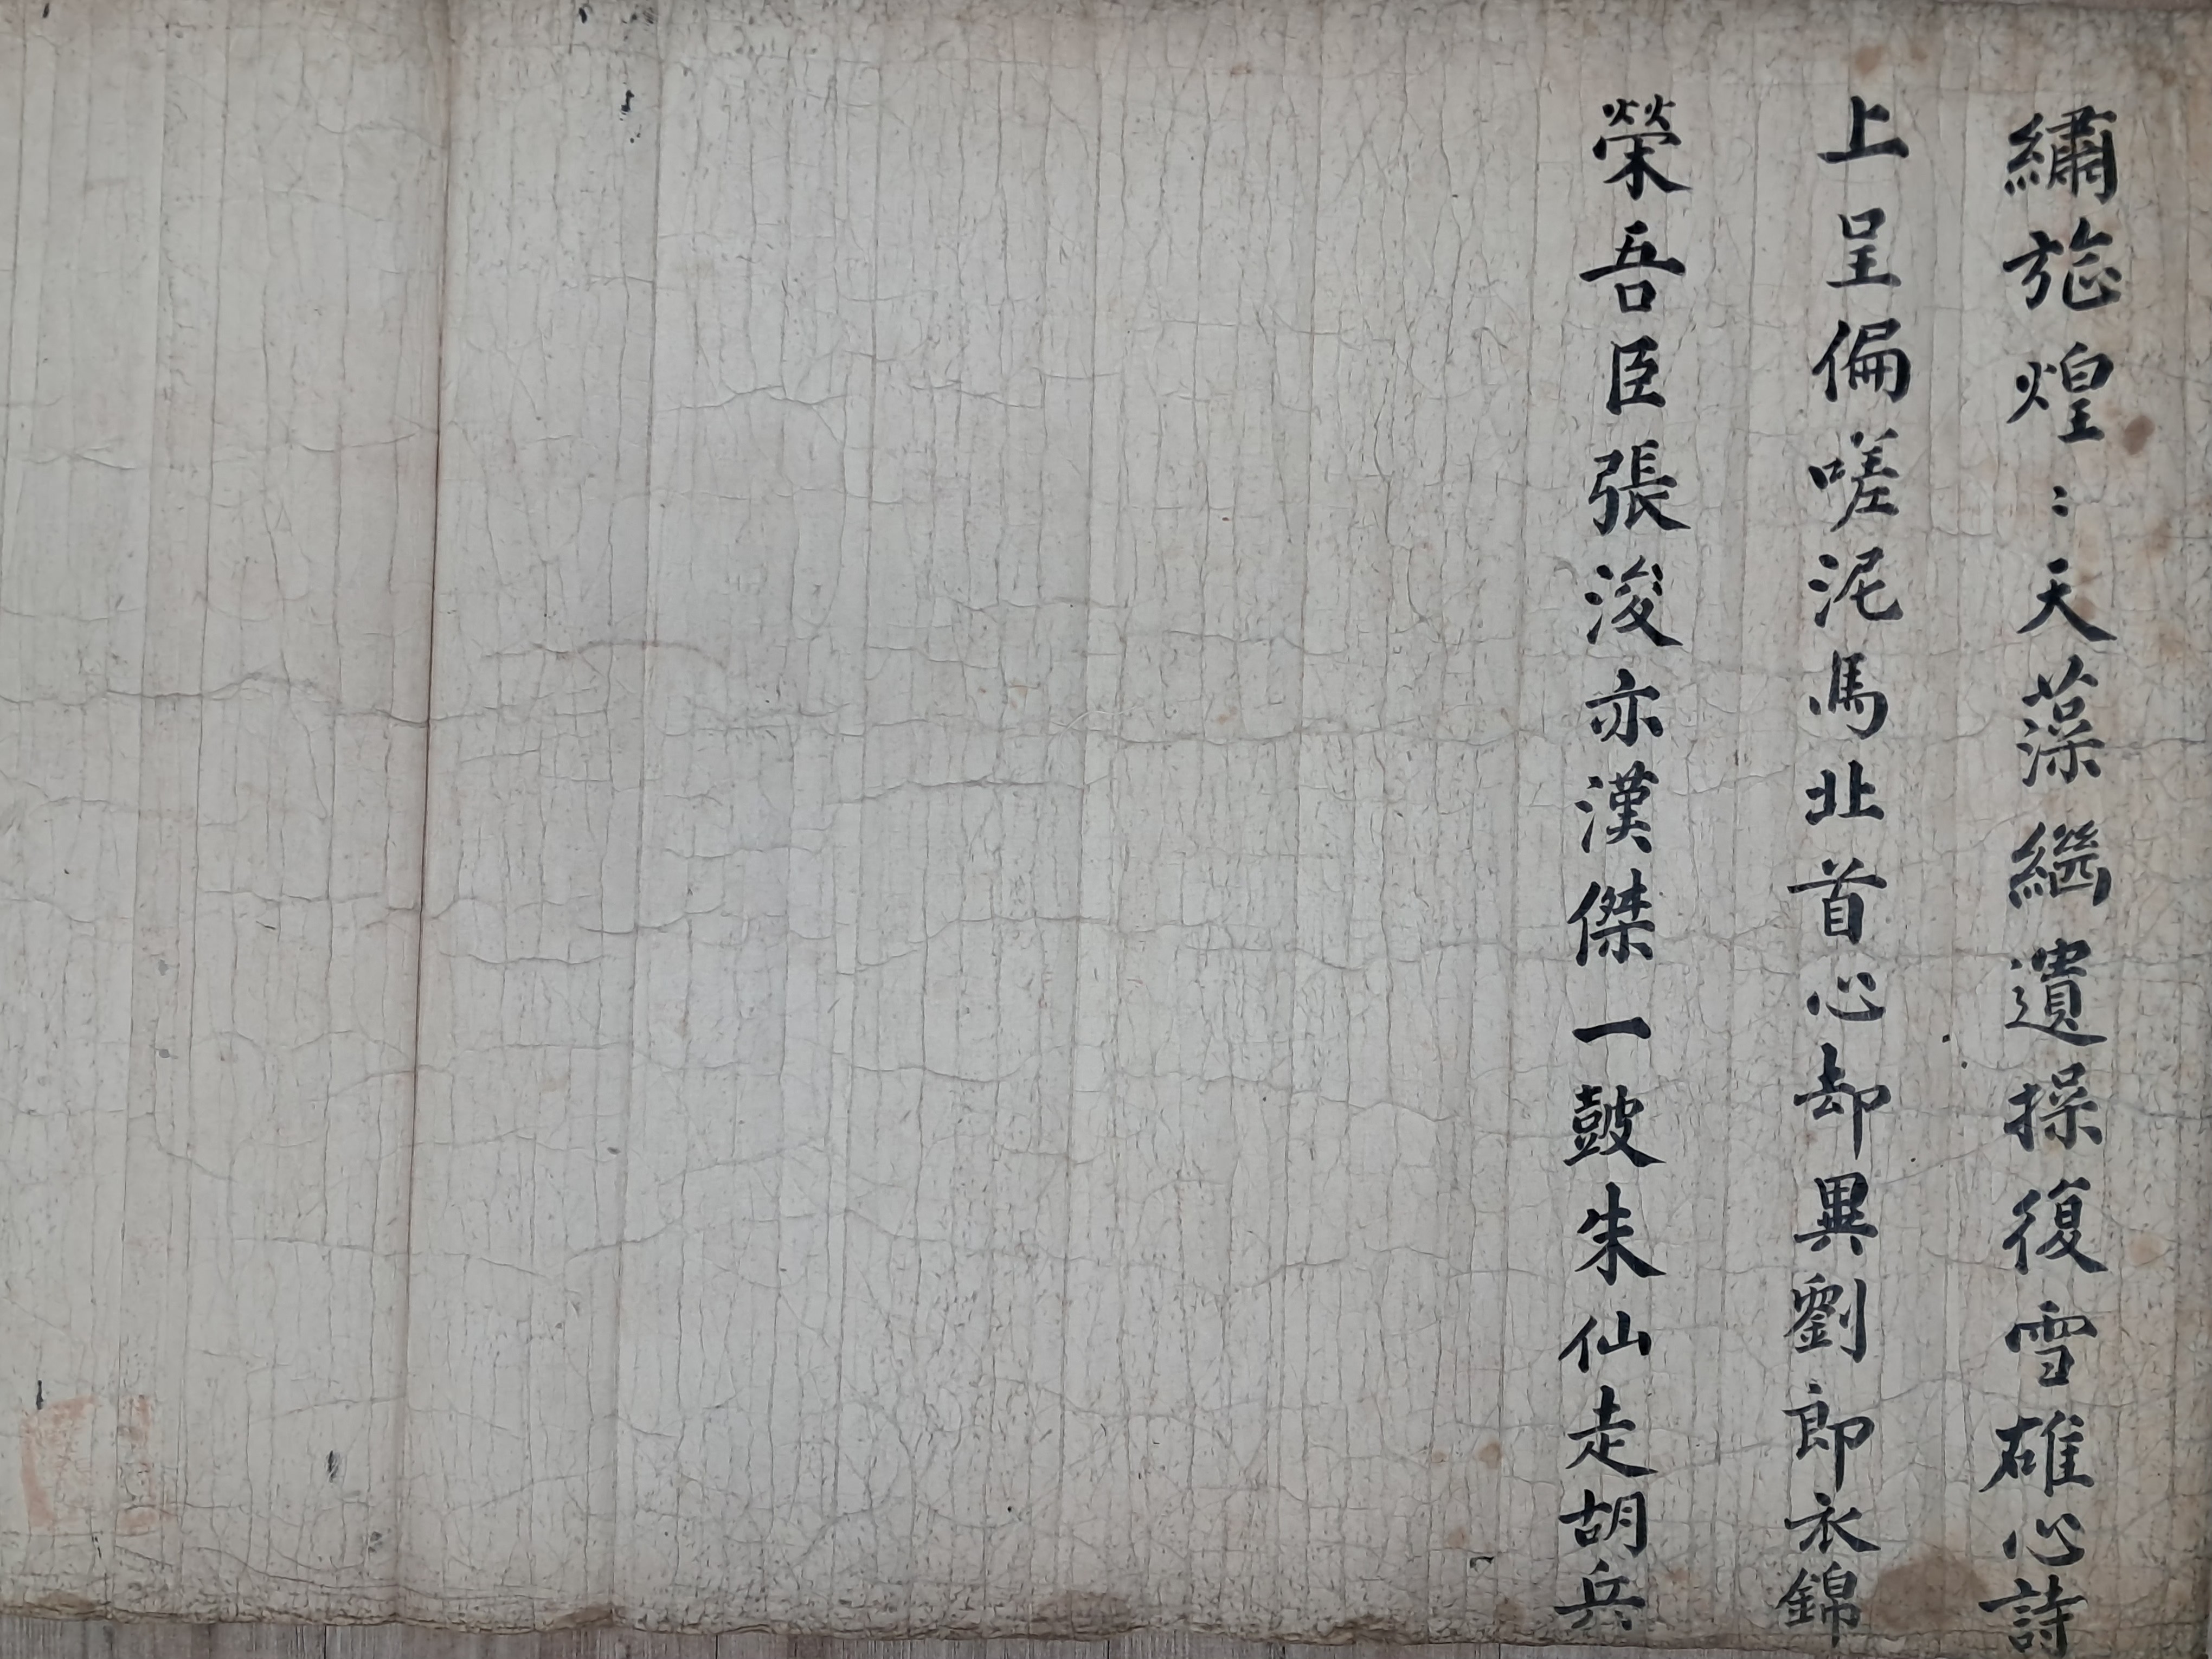 繡旍煌〻天藻繼遺操復雪雄心詩
上呈偏嗟泥馬北首心却異劉郎衣錦
榮吾臣張浚亦漢傑一皷朱仙走胡兵